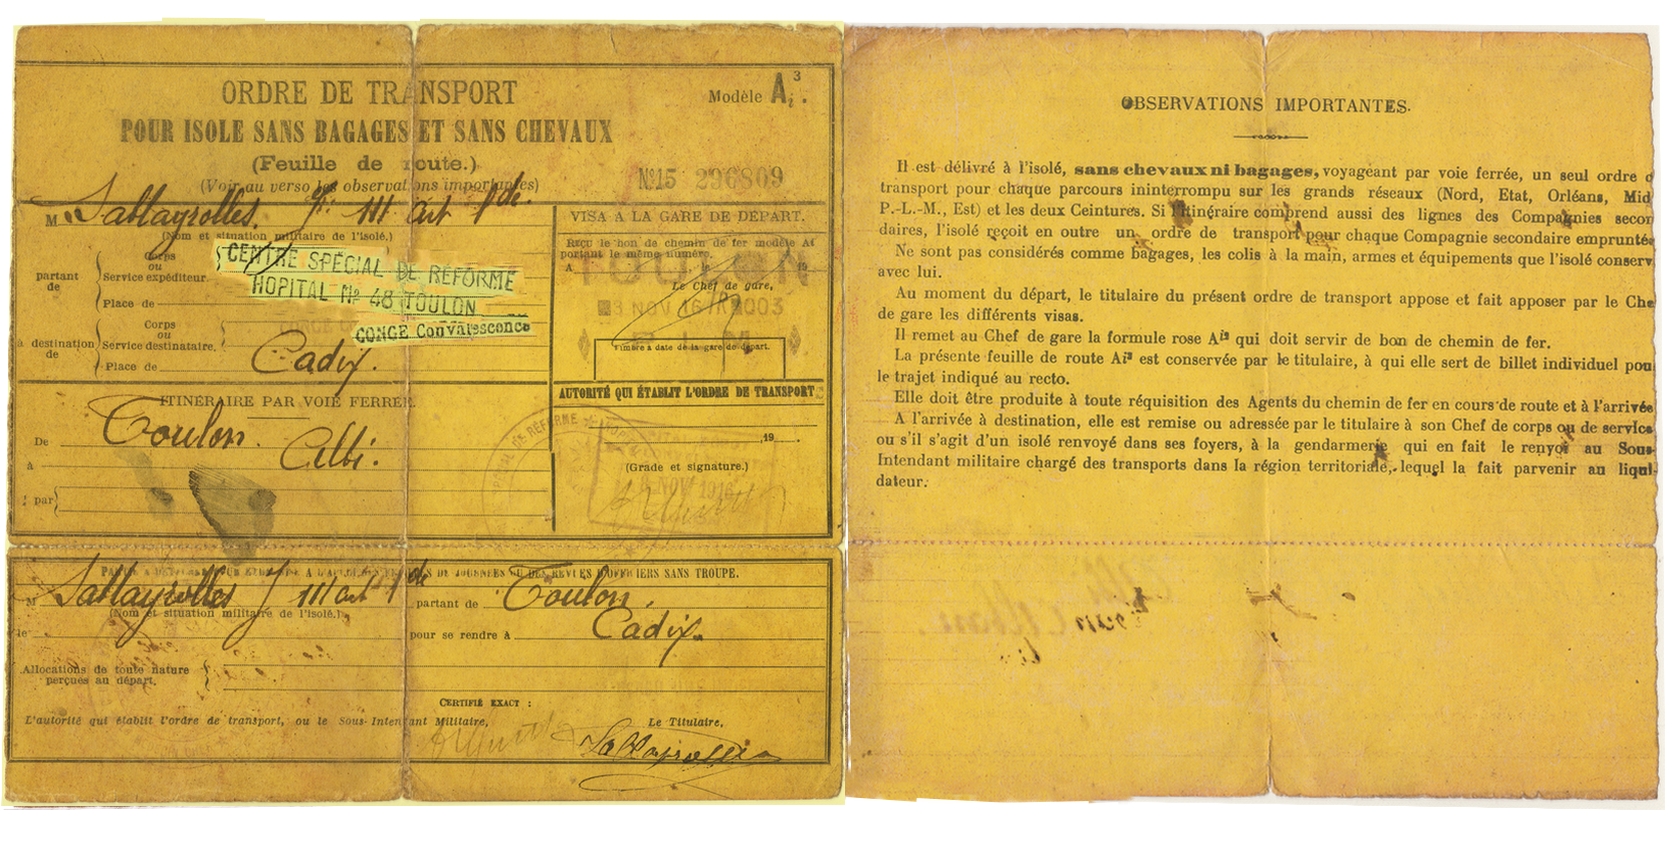 ORDRE DE TRANSPORT
Modèle A i 3.
POUR ISOLE SANS BAGAGES ET SANS CHEVAUX
(Feuille de route.)
(Voir au verso les observations importantes)
N°15 296809
M Sablayrolles. J. 111 art 1 de.
(Nom et situation militaire de l'isolé.)
partant de
Corps ou Service expéditeur.
Place de
CENTRE SPÉCIAL DE RÉFORME
HOPITAL No 48 TOULON
CONGE Convalescence
à destination de
Corps ou Service destinataire.
Place de Cadix.
ITINÉRAIRE PAR VOIE FERRÉE.
De Toulon.
à Albi.
par
VISA A LA GARE DE DÉPART.
Reçu le bon de chemin de fer modèle Ai
portant le même numéro.
A 19
TOULON
Le Chef de gare,
3 NOV 16
Timbre à date de la gare de départ.
AUTORITÉ QUI ÉTABLIT L'ORDRE DE TRANSPORT
19
(Grade et signature.)
NOV 1916
DE RÉFORME
DES REVUES D'OFFICIERS SANS TROUPE.
M Sablayrolles J 111 art 1 de partant de Toulon.
(Nom et situation militaire de l'isolé.)
le pour se rendre à Cadix.
Allocations de toute nature
perçues au départ.
CERTIFIÉ EXACT :
L'autorité qui établit l'ordre de transport, ou le Sous-Intendant Militaire,
Le Titulaire,
Sablayrolles
OBSERVATIONS IMPORTANTES.
Il est délivré à l'isolé, sans chevaux ni bagages, voyageant par voie ferrée, un seul ordre d
transport pour chaque parcours ininterrompu sur les grands réseaux (Nord, Etat, Orléans, Mid
P.-L.-M., Est) et les deux Ceintures. Si l'itinéraire comprend aussi des lignes des Compagnies secon
daires, l'isolé reçoit en outre un ordre de transport pour chaque Compagnie secondaire empruntée
Ne sont pas considérés comme bagages, les colis à la main, armes et équipements que l'isolé conserv
avec lui.
Au moment du départ, le titulaire du présent ordre de transport appose et fait apposer par le Che
de gare les différents visas.
Il remet au Chef de gare la formule rose Ai² qui doit servir de bon de chemin de fer.
La présente feuille de route Ai³ est conservée par le titulaire, à qui elle sert de billet individuel pou
le trajet indiqué au recto.
Elle doit être produite à toute réquisition des Agents du chemin de fer en cours de route et à l'arrivée
A l'arrivée à destination, elle est remise ou adressée par le titulaire à son Chef de corps ou de service
ou s'il s'agit d'un isolé renvoyé dans ses foyers, à la gendarmerie qui en fait le renvoi au Sous-
Intendant militaire chargé des transports dans la région territoriale, lequel la fait parvenir au liqui-
dateur.